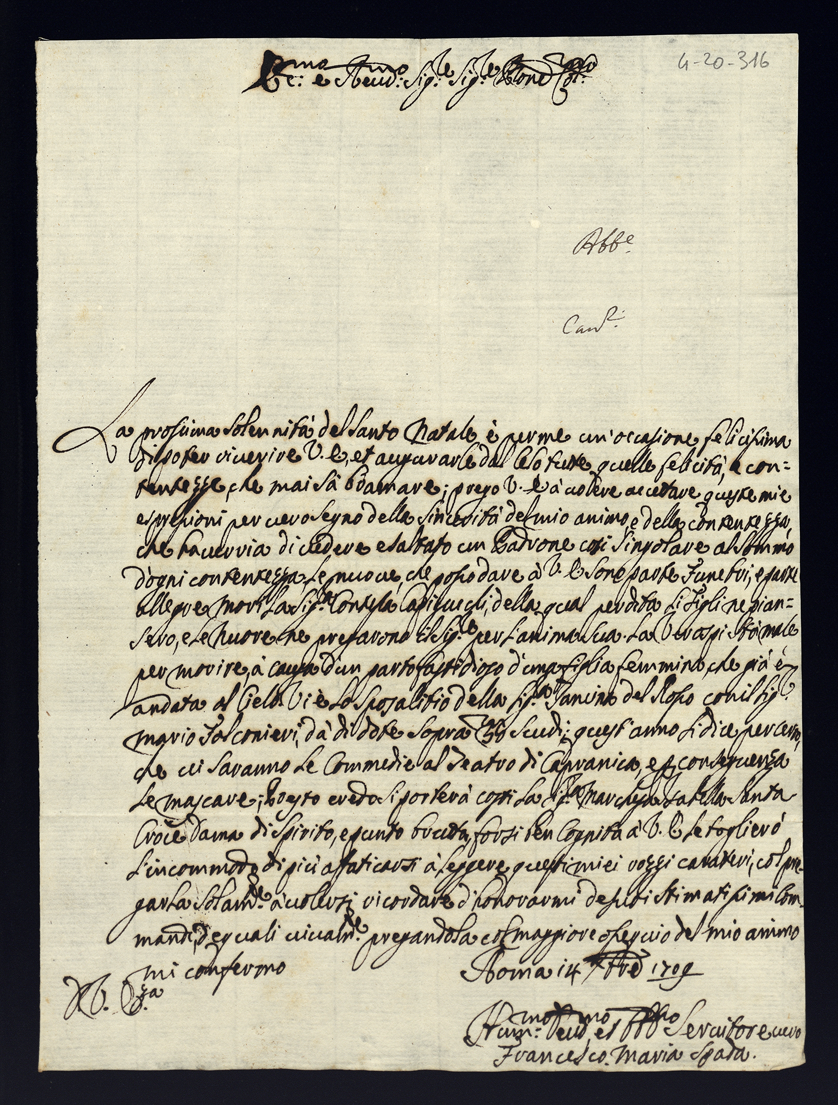 4-20-316
Ecc.mo e Reud.mo Sig.re Sig.re Prone Col.mo
Abb.e
La prossima solennità del Santo Natale è per me un'occasione felicissima
di poter riverire V. E., et augurarle dal Cielo tutte quelle felicità, e con=
tentezze, che mai sà bramare; prego V. E. à volere accettare queste mie
espressioni per vero segno della sincerità del mio animo, e della contentezza,
che haverria di vedere esaltato un Padrone così singolare al sommo
d'ogni contentezza. Le nuove, che posso dare à V. E. sono parte funebri, e parte
allegre morì la Sig.ra Contessa della qual perdita li figli ne pian=
sero, e le nuore ne pregarono il Sig.re per l'anima sua. La stà male
per morire, à causa d'un parto fastidioso d'una figlia femmina, che già è
andata al Cielo. Vi è lo sposalitio della Sig.ra del Rosso con il Sig.r
Mario Falconieri, dà di dote sopra scudi; quest'anno si dice per certo,
che vi saranno le Commedie al Teatro di Capranica, e p conseguenza
le mascare; Presto credo si porterà costì la Sig.ra Marchesa Santa
Croce Dama di spirito, e punto brutta, forsi ben cognita à V. E. le toglierò
l'incommodo di più affaticarsi à leggere questi miei rozzi caratteri, col pre=
garla solam.te à volersi ricordare d'honorarmi de suoi stimatissimi Com=
mandi, de quali vivam.te pregandola col maggiore ossequio del mio animo
mi confermo Roma 14 Xbre 1709
D V. Ecc.za
Hum.mo Deu.mo et Obb.mo Servitore vero
Francesco Maria Spada.